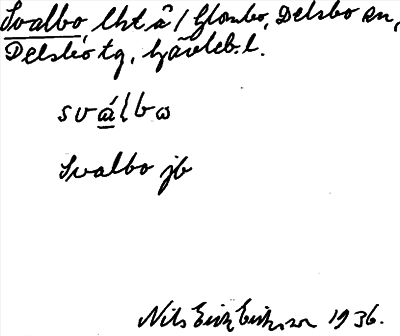 Svalbo, lht å / Glombo, Delsbo sn,
Delsbo tg, Gävleb. l.
sválbω
Svalbo jb
Nils Erik Eriksson 1936.